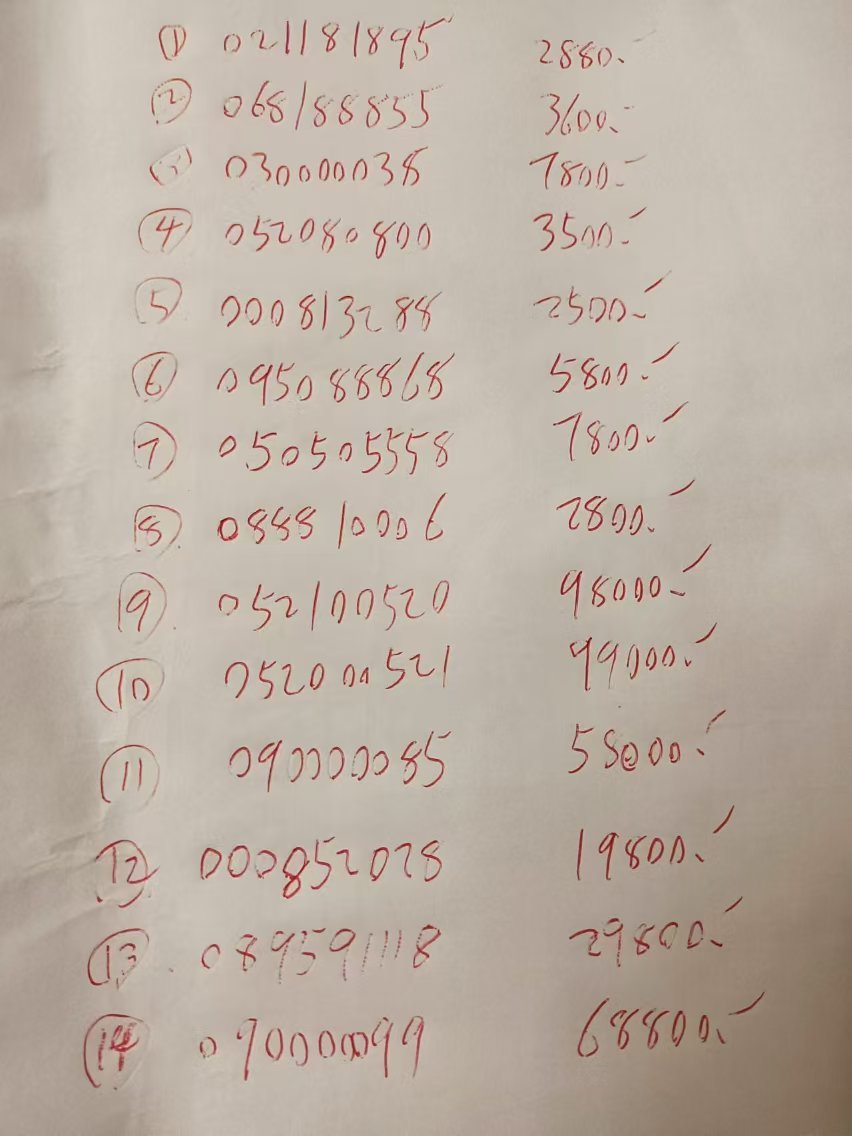 ① 021181895 2880.-
② 068188855 3600.-
③ 030000038 7800.-
④ 052080800 3500.-
⑤ 000813288 2500.-
⑥ 095088868 5800.-
⑦ 050505558 7800.-
⑧ 088810006 2800.-
⑨ 052100520 98000.-
⑩ 052000521 99000.-
⑪ 090000085 58000.-
⑫ 000852028 19800.-
⑬ 089591118 29800.-
⑭ 090000099 68800.-